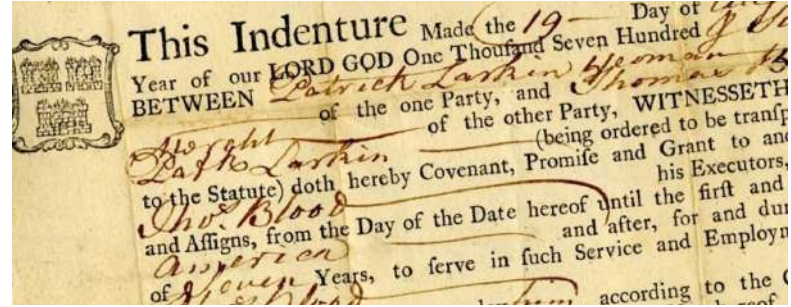 This Indenture Made the 19 Day of
Year of our LORD GOD One Thouſand Seven Hundred
BETWEEN Patrick Larkin Yeoman
of the one Party, and Thomas
of the other Party, WITNESSETH
Patk Larkin (being ordered to be tranſp
to the Statute) doth hereby Covenant, Promiſe and Grant to and
Thos. Blood his Executors,
and Aſſigns, from the Day of the Date hereof until the firſt and
America and after, for and dur
of Seven Years, to ſerve in ſuch Service and Employm
Blood him according to the C
hereof